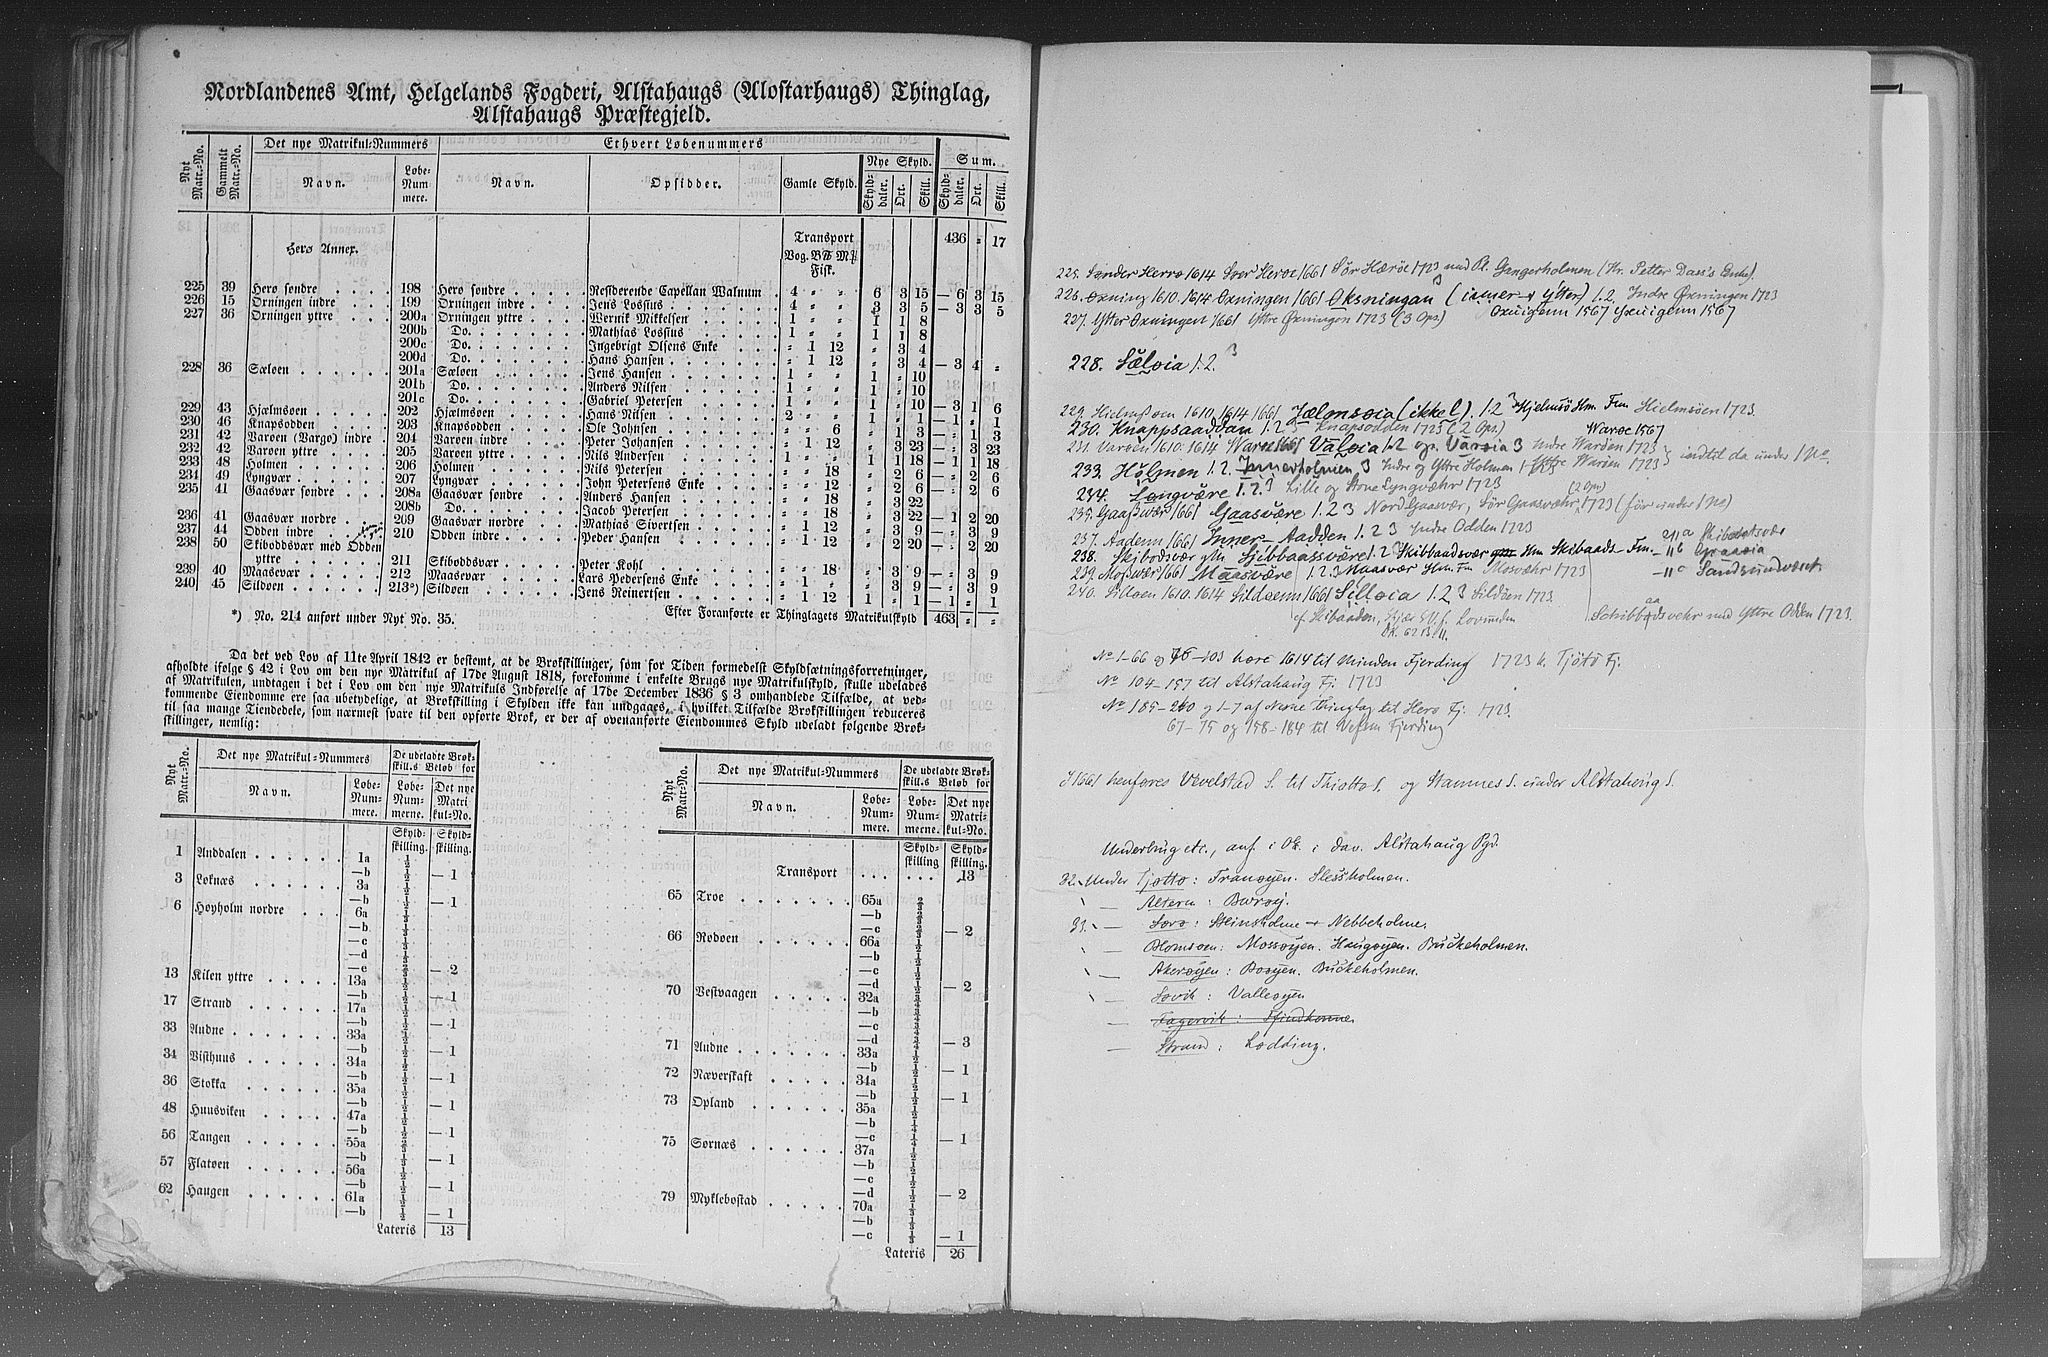 Nordlandenes Amt, Helgelands Fogderi, Alstahaugs (Alostarhaugs) Thinglag,
Alstahaugs Præstegjeld.
Nyt Matr.-No. Gammelt Matr.-No. Det nye Matrikul-Nummers Ethvert Løbenummers Sum.
Navn. Løbe-Nummere. Navn. Opsidder. Gamle Skyld. Nye Skyld.
Skylddaler. Ort. Skill. Skylddaler. Ort. Skill.
Herø Annex. Transport 436 „ 17
Vog. Fisk.
225 39 Herø søndre 198 Herø søndre Residerende Capellan Walnum 4 „ „ 6 3 15 — 6 3 15
226 15 Oxningen indre 199 Oxningen indre Jens Lossius 4 „ „ 3 3 5 — 3 3 5
227 36 Oxningen yttre 200a Oxningen yttre Wernik Mikkelsen 1 „ „ 1 1 8
200b Do. Mathias Lossius 1 „ „ 1 1 8
200c Do. Ingebrigt Olsens Enke „ 1 12 „ 3 4
200d Do. Hans Hansen „ 1 12 „ 3 4 — 3 4 „
228 36 Sæløen 201a Sæløen Jens Hansen 1 „ „ 1 „ 10
201b Do. Anders Nilsen 1 „ „ 1 „ 10
201c Do. Gabriel Petersen 1 „ „ 1 „ 10 — 3 1 6
229 43 Hjælmsøen 202 Hjælmsøen Hans Nilsen 2 „ „ 1 1 8 — 1 1 8
230 46 Knapsodden 203 Knapsodden Ole Johnsen „ „ 6 „ 1 3 — „ 1 3
231 42 Varøen (Vargø) indre 204 Varøen indre Peter Johansen „ 1 12 „ 3 23 — „ 3 23
232 42 Varøen yttre 205 Varøen yttre Nils Andersen 1 „ „ 1 1 18 — 1 1 18
233 48 Holmen 206 Holmen Nils Petersen „ „ 18 „ 2 6 — „ 2 6
234 49 Lyngvær 207 Lyngvær John Petersens Enke „ „ 12 „ 2 6 — „ 2 6
235 41 Gaasvær søndre 208a Gaasvær søndre Anders Hansen „ „ 18 „ 3 22
208b Do. Jacob Petersen „ „ 18 „ 3 22 — 1 2 20
236 41 Gaasvær nordre 209 Gaasvær nordre Mathias Sivertsen „ 1 12 „ 3 9 — „ 3 9
237 44 Odden indre 210 Odden indre Peder Hansen „ 1 12 „ 2 20 — „ 2 20
238 50 Skiboddsvær med Odden
yttre 211 Skiboddsvær Peter Kohl „ „ 18 „ 3 9 — „ 3 9
239 40 Maasvær 212 Maasvær Lars Pedersens Enke „ 1 „ „ 3 9 — „ 3 9
240 45 Sildøen 213*) Sildøen Jens Reinertsen „ 1 12 1 „ 1 — 1 „ 1
*) No. 214 anført under Nyt No. 35. Efter Foranførte er Thinglagets Matrikulskyld 463 „ „
Da det ved Lov af 11te April 1842 er bestemt, at de Brøkskillinger, som for Tiden formedelst Skyldsætningsforretninger,
afholdte ifølge § 42 i Lov om den nye Matrikul af 17de August 1818, forekomme i enkelte Brugs nye Matrikulskyld, skulle udelades
af Matrikulen, undtagen i det i Lov om den nye Matrikuls Indførelse af 17de December 1836 § 3 omhandlede Tilfælde, at vedkommende
kommende Eiendomme ere saa ubetydelige, at Brøkskilling i Skylden ikke kan undgaaes, i hvilket Tilfælde Brøkskillingen reduceres
til saa mange Tiendedele, som nærmest svare til den opførte Brøk, er der af ovenanførte Eiendommes Skyld udeladt følgende Brøk-
skillinger, nemlig:
Nyt Matr.-No. Det nye Matrikul-Nummers De udeladte Brøkskill.s Beløb for
Navn. Løbe-Nummere. Løbe-Nummerne. Det nye Matrikul-No.
Skyldskilling. Skyldskilling.
1 Anddalen 1a ½
—b ½ — 1
3 Løknæs 3a ½
—b ½ — 1
6 Høyholm nordre 6a
—b
—c
—d
—e — 2
13 Kilen yttre 13a ½
—b ½ — 1
17 Strand 17a ½
—b ½ — 1
33 Audne 33a ½
—b ½ — 1
34 Visthuus 34a ½
—b ½ — 1
36 Stokka 35a ½
—b ½ — 1
48 Huusviken 47a ½
—b ½ — 1
56 Tangen 55a
—b — 1
57 Flatøen 56a
—b ½ — 1
62 Haugen 61a ½
—b ½ — 1
Lateris 13
Nyt Matr.-No. Det nye Matrikul-Nummers De udeladte Brøkskill.s Beløb for
Navn. Løbe-Nummere. Løbe-Nummerne. Det nye Matrikul-No.
Skyldskilling Skyldskilling.
Transport 13
65 Troe 65a
—b
—c — 2
66 Rødøen 66a
—b
—c
—d — 2
70 Vestvaagen 32a
—b
—c
—d — 3
71 Audne 33a ½
—b ½ — 1
72 Næverskaft 34a ½
—b ½ — 1
73 Opland 35a
—b
—c — 1
75 Sørnæs 37a
—b
—c
—d — 2
79 Myklebostad 70a
—b
—c — 1
Lateris 26
225. Sønder Herrø 1614 Søer Herøe 1661 Sør Hærøe 1723 med Pl. Gangerholmen (Hr. Petter Dass's Enke).
226. Oxning 1610. 1614 Oxningen 1661 Oksningan (inner + ytter) 1.2. 3 Indre Øxningen 1723
227. Ytter Oxningen 1661 Yttre Øxningen 1723 (3 Ops.)
228. Sæløia 1.2. 3
229. Hielmsøen 1610. 1614 1661 Jælmsøia (ikke l). 1.2 3 Hjelmsø Hm. Fm Hielmsøen 1723.
230. Knappsaaddan 1.2 3 Knapsodden 1723 (2 Ops.) Warøe 1567
231. Varøen 1610. 1614 Warøe 1661 Valøia 1.2 og Varøia 3 Indre Warøen 1723 Yttre Warøen 1723 } indtil da under 1 No.
233. Hølmen 1.2. Innerholmen 3 Indre og Yttre Holmen 1723
234. Longvære 1.2. 3 Lille og Store Lyngvæhr 1723
235. Gaaßwær 1661 Gaasvære 1.2 3 Nord Gaasvær, Sør Gaasvæhr (2 Ops.) 1723 (før under 1 No)
237. Aadenn 1661 Inner-Aadden 1.2 3 Indre Odden 1723
238. Skibodsvær Skibbaassvære 1.2 3 Skibbaadsvær Hm Skibaads- Fm.
239. Moßwær 1661 Maasvære 1.2 3 Maasvær Hm. Fm Mosvæhr 1723
240. Silløen 1610. 1614 Sildøenn 1661 Silløia 1.2 3 Sildøen 1723.
211a Skibbotsvær
–"b Graaøia
–"c Sandsundværet
Schibbaadsvehr med Yttre Odden 1723.
No 1–66 og 76–103 høre 1614 til Minden Fjerding 1723 t. Tjøtø Fj.
No 104–157 til Alstahaug Fj. 1723
No 185–240 og 1–7 af Nesne Thinglag til Herø Fj. 1723.
67–75 og 158–184 til Vefsen Fjerding
I 1661 henføres Vevelstad S. til Thiøttø S. og Stamnes S. under Alstahoug S.
Underbrug etc., anf. i OR. i dav. Alstahaug Pgd.
32. Under Tjøttø: Fransøyen. Slessholmen.
— Alstern: Barøy.
31. — Søvø: Steinsholme + Nebbeholme.
— Blomsøen: Mossøyen. Haugøyen. Buckeholmen.
— Akerøyen: Boøyen. Buckeholmen.
— Søvik: Valleøyen
— Fagervik: Tjindkonne.
— Strand: Lodding.